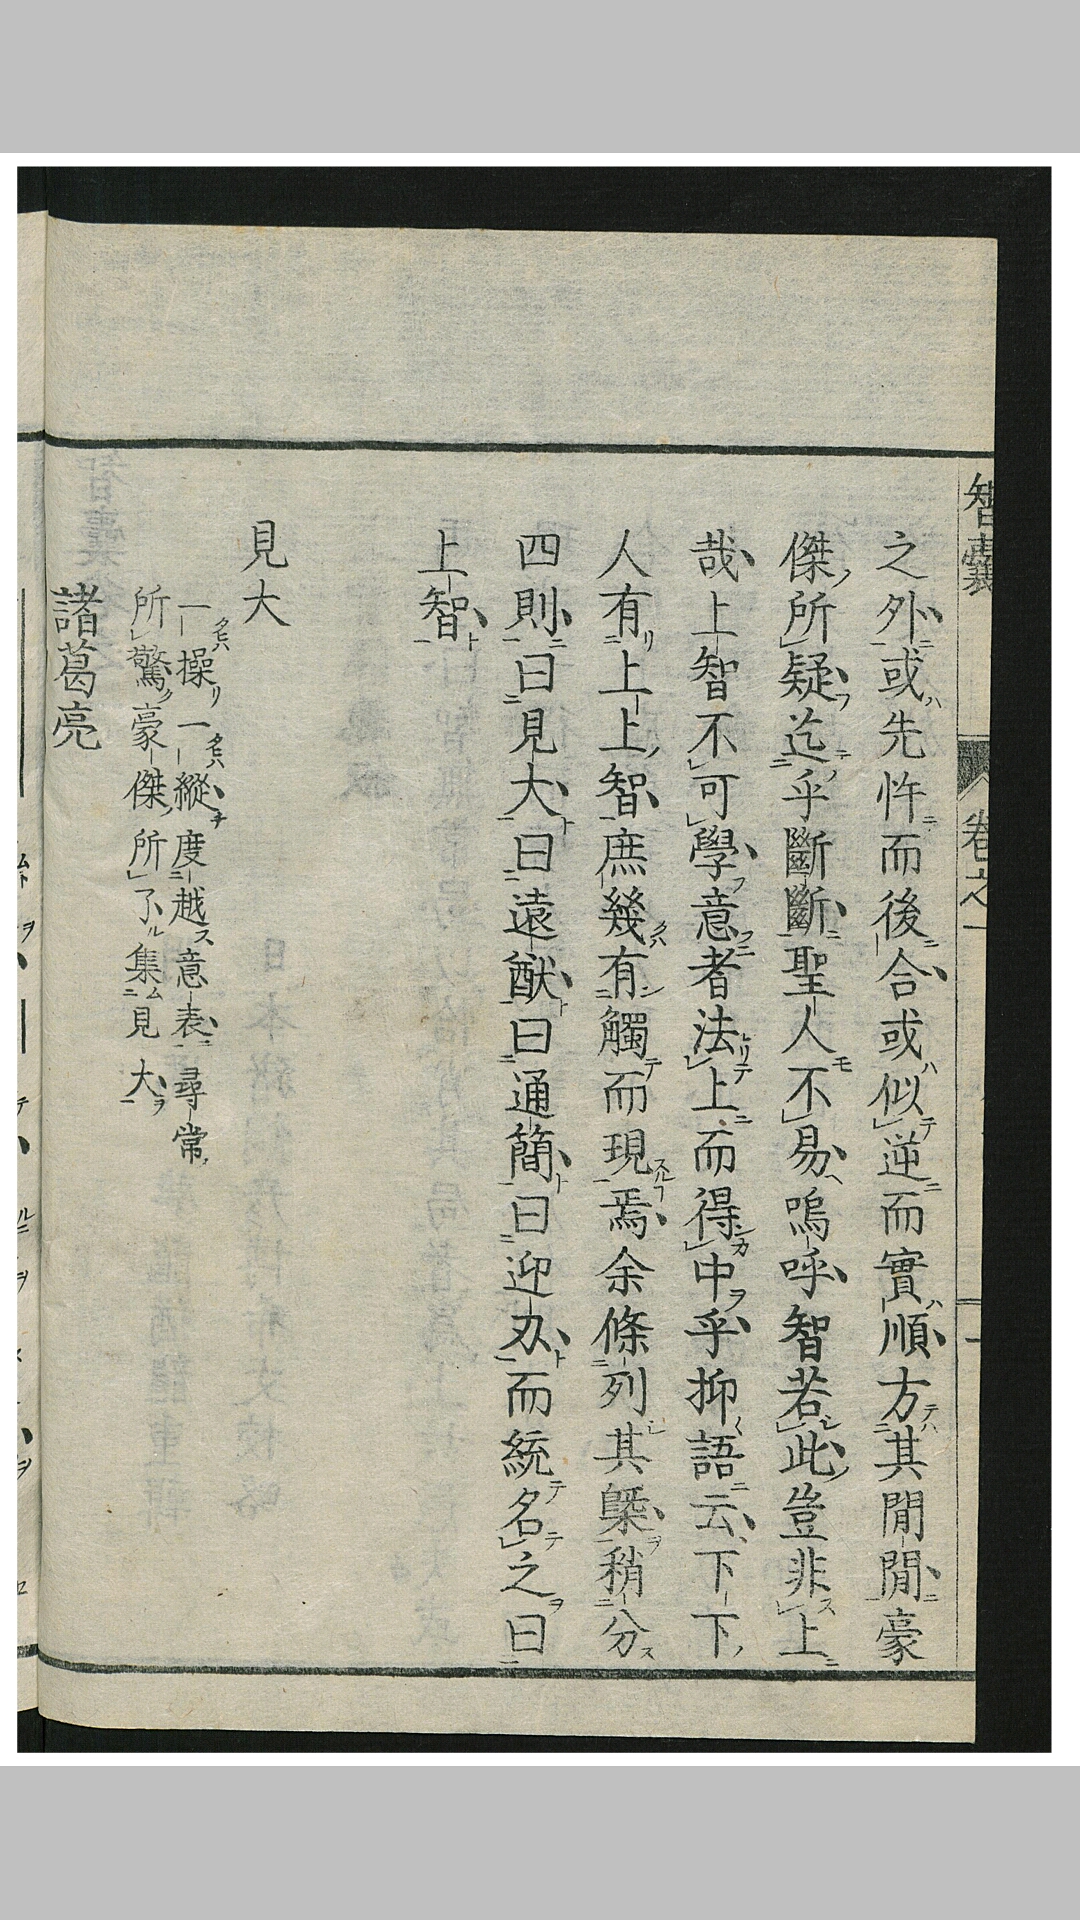 智囊 卷之一 一
之外或先忤而後合或似逆而實順方其閒閒豪
傑所疑迄乎斷斷聖人不易嗚呼智若此豈非上
哉上智不可學意者法上而得中乎抑語云下下
人有上上智庶幾有觸而現焉余條列其槩稍分
四則曰見大曰遠猷曰通簡曰迎刃而統名之曰
上智
見大
一操一縱度越意表尋常
所驚豪傑所了集見大
諸葛亮